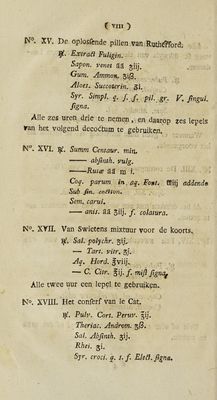 ( VIII )
N°. XV. De oplossende pillen van Rutherford.
℞. Extract Fuligin.
Sapon. venet āā ʒiij.
Gum. Ammon. ʒiß.
Aloes. Succoterin. ʒi.
Syr. Simpl. q. s. f. pil. gr. V. singul.
signa.
Alle zes uren drie te nemen, en daarop zes lepels
van het volgend decoctum te gebruiken.
N°. XVI. ℞. Summ Centaur. min.
— absinth. vulg.
— Rutæ āā m i.
Coq. parum in aq. Font. ℔iij addende
Sub fin. coction.
Sem. carui.
— anis. āā ʒiij. f. colatura.
N°. XVII. Van Swietens mixtuur voor de koorts.
℞. Sal. polychr. ʒij.
— Tart. vitr. ʒi.
Aq. Hord. ℥viij.
— C. Citr. ℥ij. f. mist signa.
Alle twee uur een lepel te gebruiken.
N°. XVIII. Het conserf van le Cat.
℞. Pulv. Cort. Peruv. ℥j.
Theriac. Androm. ʒß.
Sal. Absinth. ʒij.
Rhei. ʒi.
Syr. croci. q. s. f. Elect. signa.